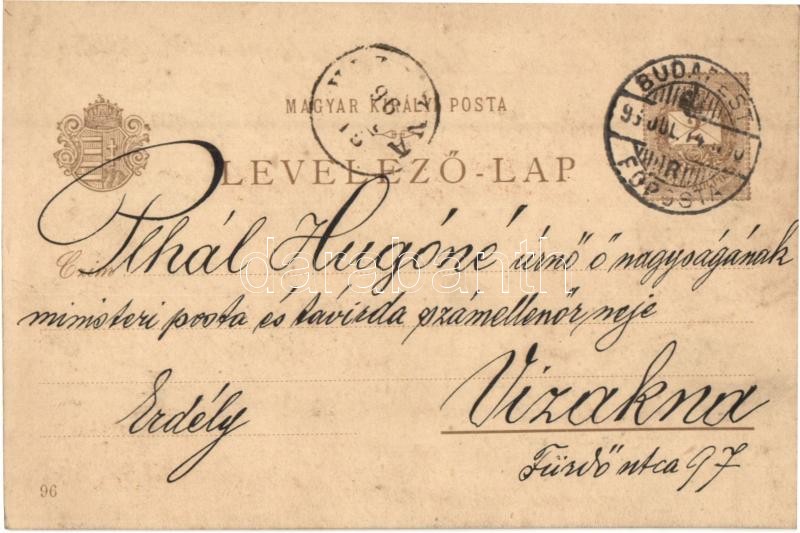 MAGYAR KIRÁLYI POSTA
LEVELEZŐ-LAP
BUDAPEST
FŐPOSTA
96
Czim
Plhál Hugóné úrnő ő nagyságának
ministeri posta és távirda számellenőr neje
Erdély
Vizakna
Fürdő utca 97
96
darabanth